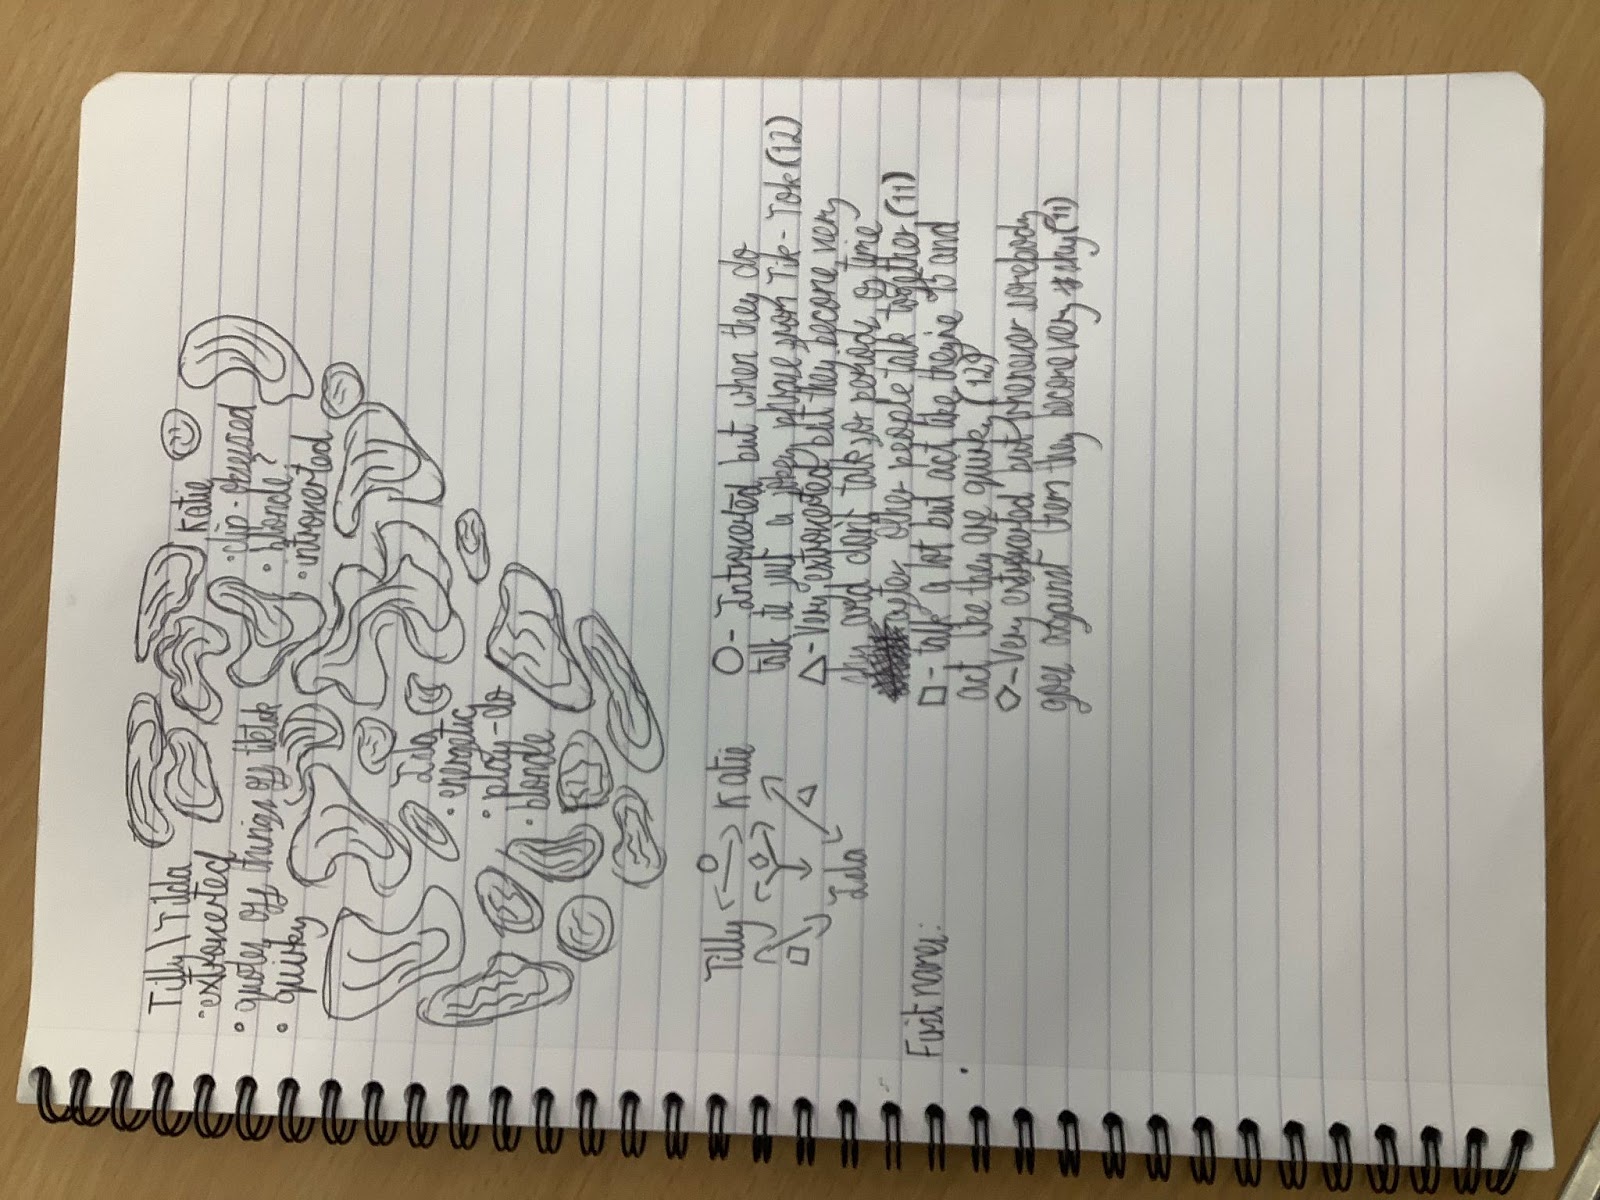 Tilly \ Tilda
• extroverted
• quotes off things off tiktok
• quirky
Katie
• clip-obsessed
• blonde?
• introverted
Isla
• energetic
• play-do
• blonde
Tilly
Katie
Isla
First names:
○ - Introverted but when they do
talk it just a phrase from Tik-Tok (12)
△ - Very extroverted but they become very
shy and don't talk for periods of time
after other people talk together (11)
□ - talk a lot but act like they're 25 and
act like they are quirky (12)
- Very extroverted but whenever somebody
goes against them they become very shy (11)